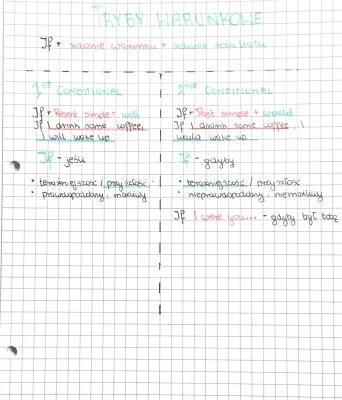 TRYBY WARUNKOWE
If + zdanie warunku + zdanie rezultatu
1ST CONDITIONAL
If + Present simple + will
If I drink some coffee, I
will wake up
If - jeśli
• teraźniejszość / przyszłość
• prawdopodobny, możliwy
2ND CONDITIONAL
If + Past simple + would
If I drank some coffee, I
would wake up
If - gdyby
• teraźniejszość / przyszłość
• nieprawdopodobny, niemożliwy
If I were you... - gdyby był tobą